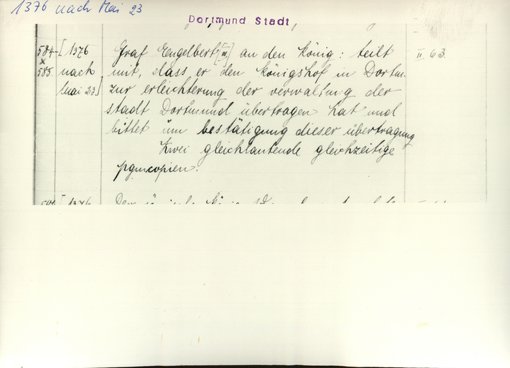 1376 nach Mai 23
Dortmund Stadt
584 [1376 Graf Engelbert [III] an den König: teilt II 63.
x
585 nach mit, dass er den Königshof in Dortm.
Mai 23] zur erleichterung der verwaltung der
stadt Dortmund übertragen hat und
bittet um bestätigung dieser übertragung
Zwei gleichlautende gleichzeitige
pgmcopien.
[1376